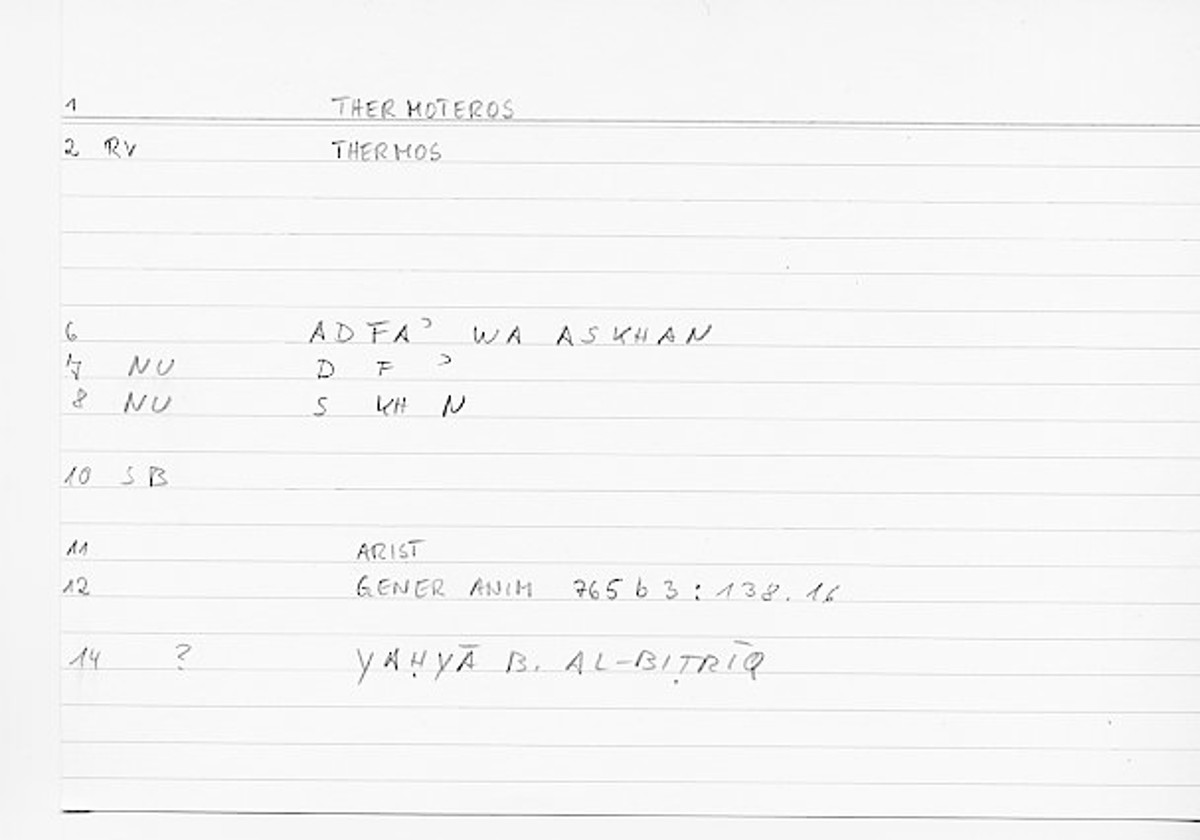 1 THERMOTEROS
2 RV THERMOS
6 ADFAʾ WA ASKHAN
7 NU D F ʾ
8 NU S KH N
10 SB
11 ARIST
12 GENER ANIM 765 b 3 : 138.16
14 ? YAḤYĀ B. AL-BIṬRĪQ